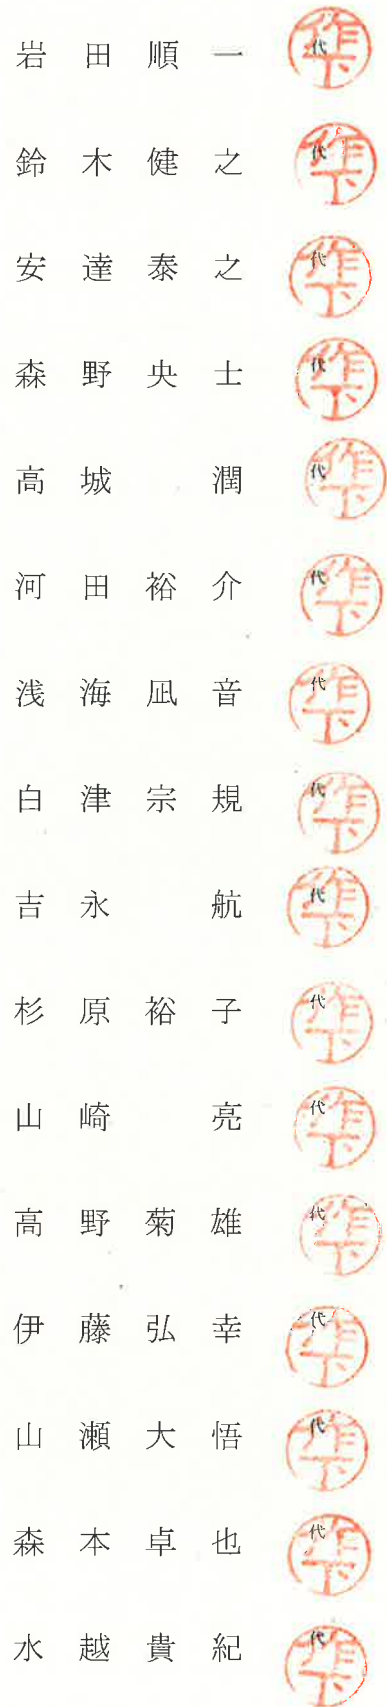 岩田順一 代 作下
鈴木健之 代 作下
安達泰之 代 作下
森野央士 代 作下
高城 潤 代 作下
河田裕介 代 作下
浅海凪音 代 作下
白津宗規 代 作下
吉永 航 代 作下
杉原裕子 代 作下
山崎 亮 代 作下
高野菊雄 代 作下
伊藤弘幸 代 作下
山瀬大悟 代 作下
森本卓也 代 作下
水越貴紀 代 作下